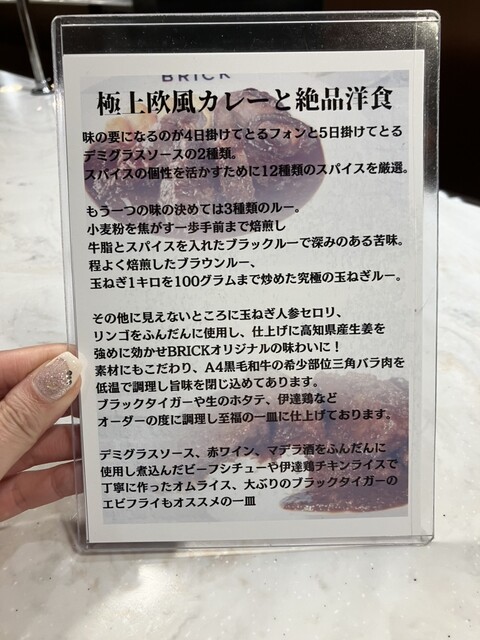 BRICK
極上欧風カレーと絶品洋食
味の要になるのが4日掛けてとるフォンと5日掛けてとる
デミグラスソースの2種類。
スパイスの個性を活かすために12種類のスパイスを厳選。
もう一つの味の決めては3種類のルー。
小麦粉を焦がす一歩手前まで焙煎し
牛脂とスパイスを入れたブラックルーで深みのある苦味。
程よく焙煎したブラウンルー、
玉ねぎ1キロを100グラムまで炒めた究極の玉ねぎルー。
その他に見えないところに玉ねぎ人参セロリ、
リンゴをふんだんに使用し、仕上げに高知県産生姜を
強めに効かせBRICKオリジナルの味わいに！
素材にもこだわり、A4黒毛和牛の希少部位三角バラ肉を
低温で調理し旨味を閉じ込めてあります。
ブラックタイガーや生のホタテ、伊達鶏など
オーダーの度に調理し至福の一皿に仕上げております。
デミグラスソース、赤ワイン、マデラ酒をふんだんに
使用し煮込んだビーフシチューや伊達鶏チキンライスで
丁寧に作ったオムライス、大ぶりのブラックタイガーの
エビフライもオススメの一皿